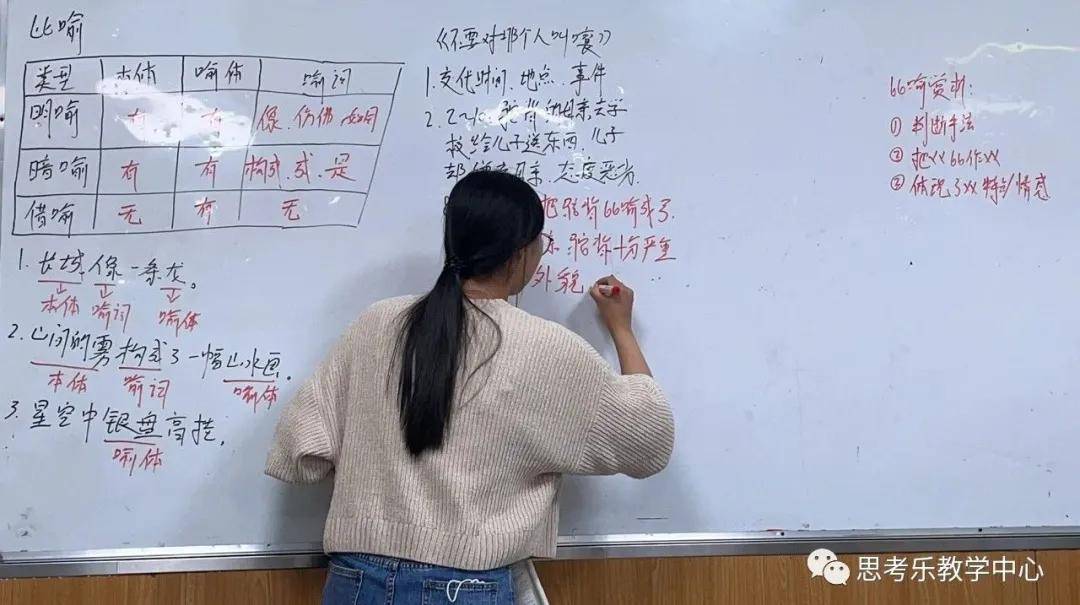 比喻
类型 本体 喻体 喻词
明喻 有 有 像、仿佛、如同
暗喻 有 有 构成、成、是
借喻 无 有 无
1. 长城像一条龙。
本体 喻词 喻体
2. 山间的雾构成了一幅山水画。
本体 喻词 喻体
3. 星空中银盘高挂。
喻体
《不要对那个人叫嚷》
1. 交代时间、地点、事件
2. 2~
校给儿子送东西,儿子
态度恶劣.
把驼背比喻成了
驼背十分严重
外貌
比喻赏析:
① 判断手法
② 把XX比作XX
③ 体现了XX特点/情感
思考乐教学中心